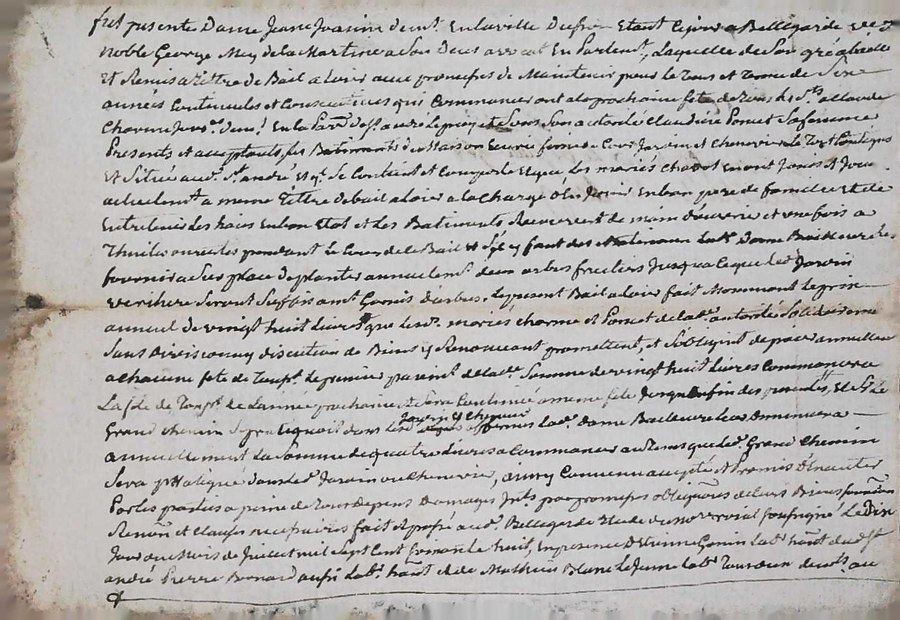 fut presente Dame Jeanne Jossine demt. En la ville De feurs Etant Ce jour a Bellegarde ve. de
noble George Mey de la Martine a Son Deces avocat En Parlemt., Laquelle de Son gré a baillé
Et Remis a tittre de Bail a Loier avec promesses de Maintenir pour le Tems et Terme de Six
années Continuels et Consecutives qui Commanceront a la prochaine fête de Tous Sts. a Claude
Charme Jurr. demt. En la Parr. de St. andré Le puy et de Sous Son autorité Claudine Poncet Sa femme
Presents et acceptants, les Batimants de Maison Ecurie feniere Cour Jardin et Chenevier le Tout Contigus
Et Situé aud. St. andré Et qu. Se Contient et Comporte Et que Les mariés Chavot En ont Jouis et Jou
actuelemt. a meme tittre de bail a loier a la Charge d'En Jouir En bon pere de famille et de
Entretenir les haies En bon Etat et Les Batiments Recouverts de main d'ouvrier et une fois a
Thuiles ouverts pendant le Cours de le Bail Et S'il y faut des Materiaux Lad. Dame Bailleure les
fournira Sur place de planter annuelemt. deux arbres fruitiers Jusqu'a Ce que led. Jardin
verchere Seront Suffisamt. Garnis d'arbres, le present Bail a loier fait Moyenant le prix
annuel de vingt huit Livres que lesd. mariés charme et Poncet de lad. autorité Solidairemt.
Sans Division ny discution de Biens y Renonceant promettent, et S'obligent de païer annuellemt
a Chacune fete de Toussts. Le premier paiemt. de lad. Somme de vingt huit Livres Commancera
La fete de Toussts. de L'année prochaine Et Sera Continué a meme fête Jusqu'a la fin des presentes, Et Si Le
Grand chemin Se pratiquoit dans lesd. Jardin Et Chenevier affermés Lad. Dame Bailleure Leur Diminuera
annuellement La Somme de quatre Livres a Commancer au Tems que led. Grand Chemin
Sera pratiqué dans led. Jardin ou Chenevier, ainsy Convenu accepté et Promis D'Executer
Par les parties a peine de Tous Depens Domages Jnts. par promesses obligaons. de leurs Biens
Renon. et Clauses necessaires fait Et passé aud. Bellegarde Etude du No.re roial soussigné Le Dix
Jour du Mois de Juillet mil Sept Cent Soixante huit, En presence D'Etienne Gonin Labr. habt. dud. St
andré Pierre Bonard aussi Labr. habt. Et de Mathieu Blanc Le Jeune Labr. Tous deux dud. au